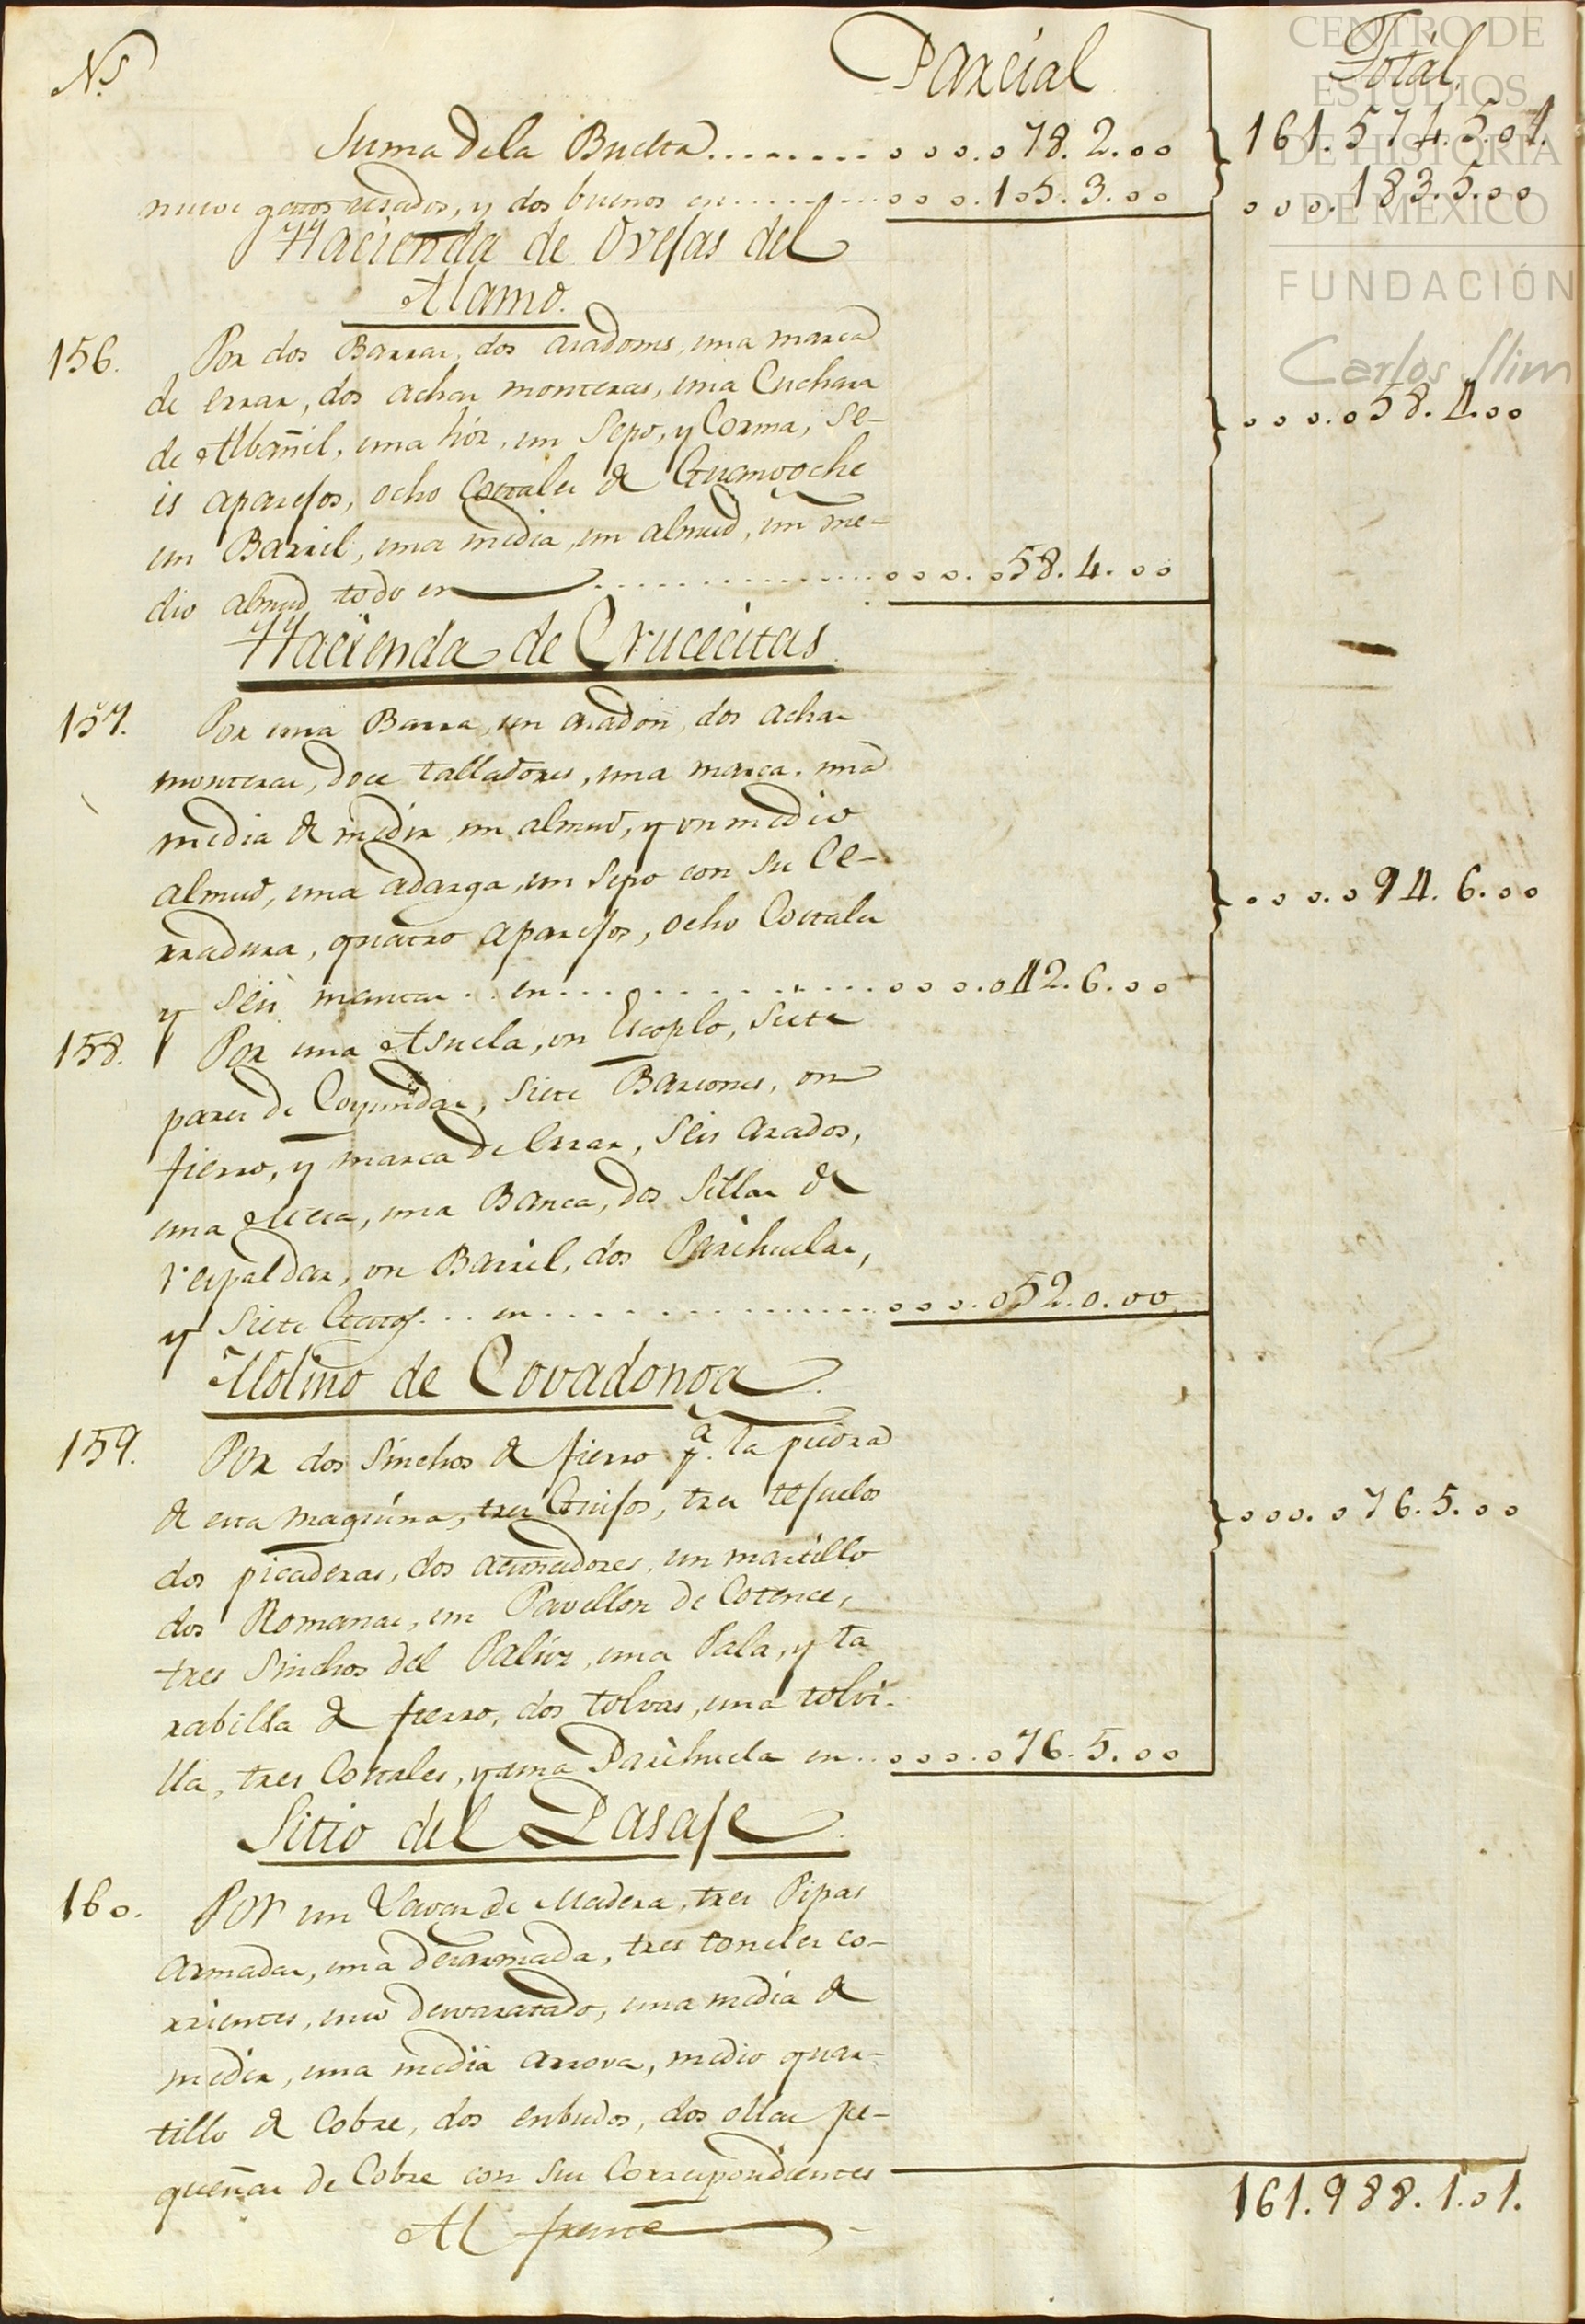 N.s Parcial Total
Suma dela Buelta......... 000.078.2.00 161.574.5.01.
nueve gatos usados, y dos buenos en......... 000.105.3.00 000.183.5.00
Hacienda de Ovejas del
Alamo.
156. Por dos Barras, dos aradones, una marca
de errar, dos achas monteras, una Cuchara
de Albañil, una hóz, un Sepo, y Corma, Se-
is aparejos, ocho Costales de Guangoche
un Barril, una media, un almud, un me-
dio almud todo en ............... 000.058.4.00 000.058.4.00
Hacienda de Crucecitas
157. Por una Barra, un aradon, dos achas
monteras, doce talladores, una marca, una
media de medir, un almud, y un medio
almud, una adarga, un Sepo con su Ce-
rradura, quatro aparejos, ocho Costales
y seis mantas .. en............... 000.042.6.00 000.094.6.00
158. Por una Asuela, un Escoplo, Siete
pares de Coyundas, Siete Barsones, un
fierro, y marca de errar, Seis arados,
una Mesa, una Banca, dos Sillas de
respaldar, un Barril, dos Parihuelas,
y Siete ... en............... 000.052.0.00
Molino de Covadonga
159. Por dos Sinchos de fierro p.a la piedra
de esta maquina, tres Guijos, tres tejuelos
dos picaderas, dos acuñadores, un martillo
dos Romanas, un Pavellon de Cotence,
tres Sinchos del Palúz, una Pala, y Ta
rabilla de fierro, dos tolvas, una tolvi-
lla, tres Costales, y una Parihuela en.. 000.076.5.00 000.076.5.00
Sitio del Pasaje
160. Por un de Madera, tres Pipas
armadas, una desarmada, tres toneles co-
rrientes, uno desvaratado, una media de
medir, una media arrova, medio quar-
tillo de Cobre, dos enbudos, dos ollas pe-
queñas de Cobre con sus Correspondientes
Al frente 161.988.1.01.
CENTRO DE
ESTUDIOS
DE HISTORIA
DE MÉXICO
FUNDACIÓN
Carlos Slim